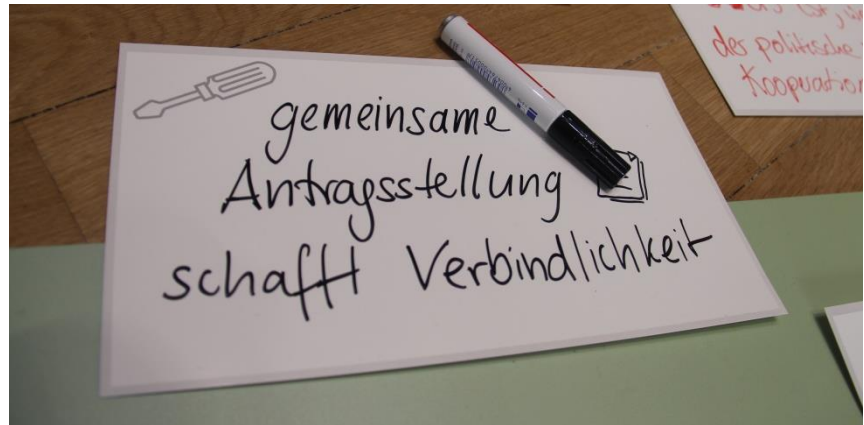 gemeinsame
Antragsstellung
schafft Verbindlichkeit
der politische
Kooperation